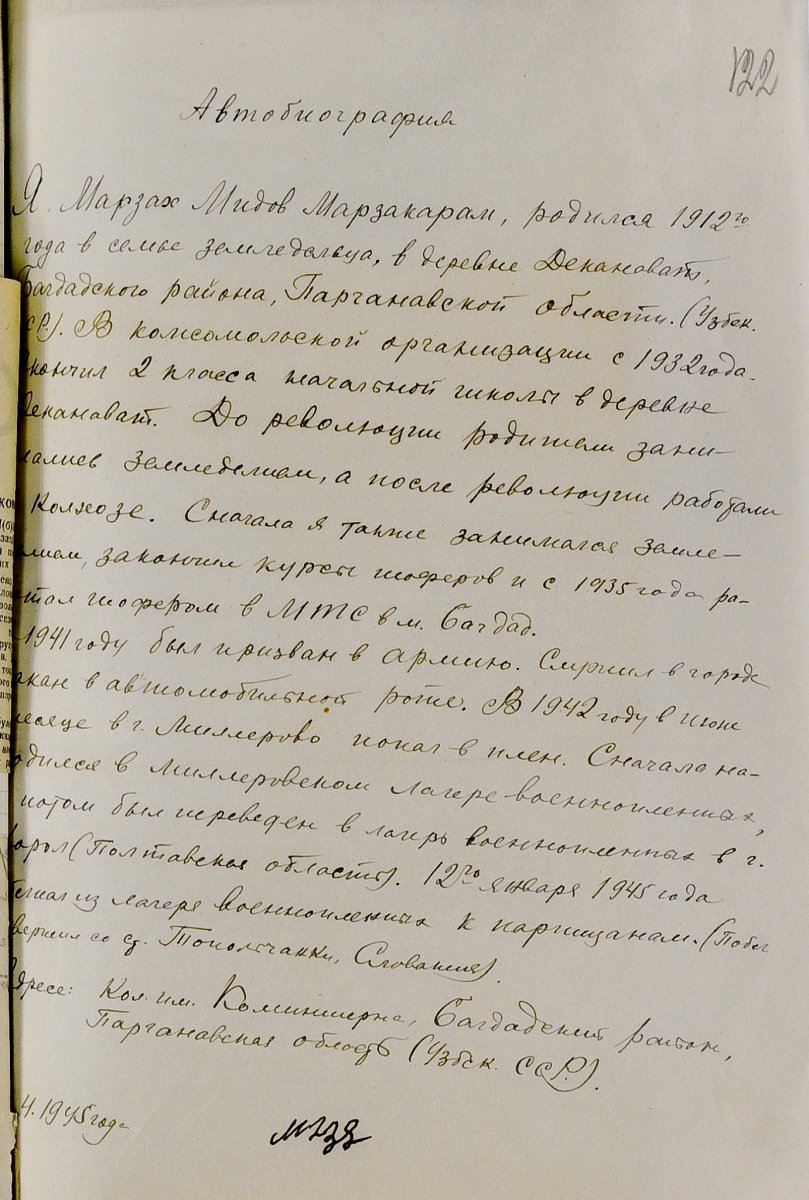 122
Автобиография
Я. Марзах Мидов Марзакарам, родился 1912го
года в семье земледельца, в деревне Декановат,
Багдадского района, Парганавской области. (Узбек.
ССР). В комсомольской организации с 1932 года.
кончил 2 класса начальной школы в деревне
Декановат. До революции родители зани-
мались земледелием, а после революции работали
Колхозе. Сначала я также занимался земле-
лием, закончил курсы шоферов и с 1935 года ра-
отал шофером в МТС в м. Багдад.
1941 году был призван в армию. Служил в городе
акан в автомобильной роте. В 1942 году в июне
месяце в г. Миллерово попал в плен. Сначала на-
одился в Миллеровском лагере военнопленных,
потом был переведен в лагерь военнопленных в г.
орол (Полтавская область). 12го января 1945 года
бежал из лагеря военнопленных к партизанам. (Побег
вершил со ст. Топольчанки, Словакия).
Адресс: Кол. им. Коминтерна, Багдадский район,
Парганавская область (Узбек. ССР.).
4. 1945 года